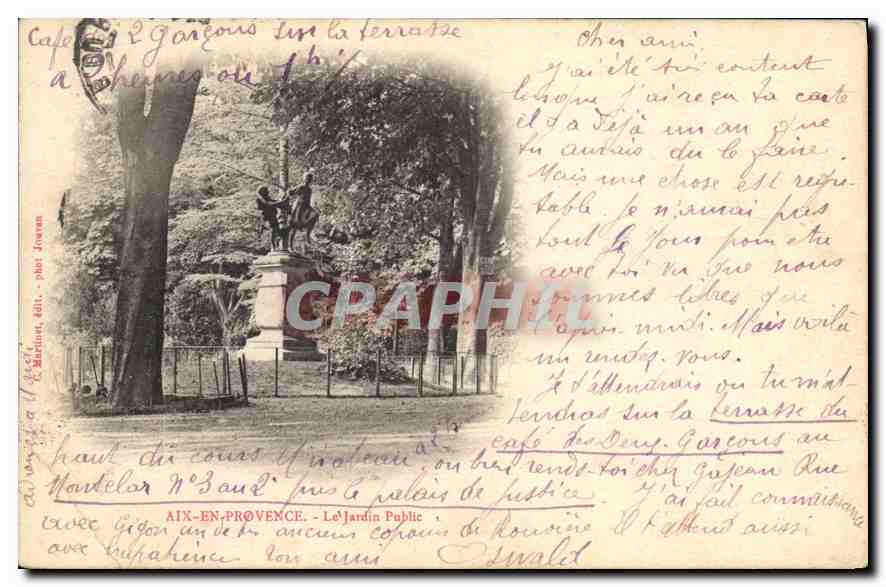 Café des 2 Garçons sur la terrasse
a 2 heures ou 1h
cher ami,
J'ai été très content
lorsque j'ai reçu ta carte
il y a déjà un an que
tu aurais du le faire.
Mais une chose est regret-
table. Je n'aurai pas
tout le jour pour être
avec toi vu que nous
sommes libres que
l'après midi. Mais voilà
un rendez-vous.
Je t'attendrais ou tu m'at-
tendras sur la terrasse du
café des Deux Garçons au
haut du cours Mirabeau à 2h, ou bien rends-toi chez Gajean Rue
Montclar N° 3 au 2e près le palais de justice. J'ai fait connaissance
avec Gigon un de tes anciens copains de Rouvière il t'attend aussi
avec impatience ton ami Oswald
C. Martinet, édit. - phot Jouven
CPAPHIL
AIX-EN-PROVENCE. - Le Jardin Public